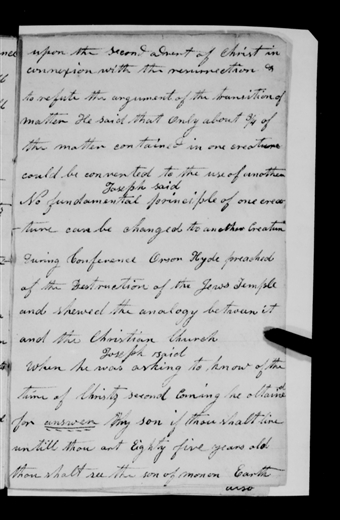 upon the second advent of Christ in
connexion with the resurrection &
to refute the argument of the transition of
matter He said that only about 3/4 of
the matter contained in one creature
could be converted to the use of another
Joseph said
No fundamental principle of one crea
ture can be changed to another Creature
During Conference Orson Hyde preached
of the Destruction of the Jews Temple
and shewed the analogy between it
and the Christian Church
Joseph said
When he was asking to know of the
time of Christs second Coming he obtained
for answer My son if thou shalt live
untill thou art Eighty five years old
thou shalt see the son of man on Earth
also